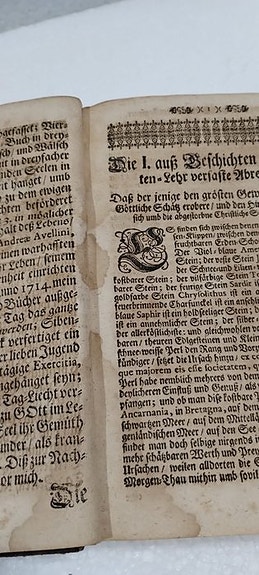 verfasset; Vier-
Buch in drey-
sch und Wälsch
nt in dreyfacher
nden Seelen in
it hanget / und
zu dem ewigen
chtert / befördert
e in möglicher
hlt deß Lebens/
Andreæ Avellini
nen warhafften
er Leben / seinem
enheit einrichten
nno 1714. mein
Bücher außge-
Tag das gantze
werden; Stuck
k verfertiget ein
er lieben Jugend
tägige Exercitia,
ngehänget seyn;
Tag-Liecht ver-
zu GOtt im Le-
Seel ihr Gemüth
under / als kran-
. Diß zur Nach-
or mich.
Die
I
Die I. auß Geschichten
ten-Lehr verfaste
Daß der jenige den grösten
Göttliche Schätz erobert / und den
sich und die abgestorbne Christliche
Es finden sich zwischen denen
en-Klippen / zwischen den
fruchtbaren Erden-Scho
Der Viol-blaue Ame
Stein; der veste Stein
der Schnee und Eilen-
tostbarer Stein; der vilfärbige Stein
barer Stein; der feurige Stein Sardi
goldfarbe Stein Chrysolithus ist ein
feuerbrinnende Charfunckel ist ein anschli
blaue Saphir ist ein holdseeliger Stein; d
ist ein annehmlicher Stein; der silber-
der allerköstlichiste: und gleichwohlen v
baren / theuren Edlgesteinen und Klein
schnee-weisse Perl den Rang und Vorz
kündiger / setzet die Ursach hinzu / ex
que majorem eis esse societatem, q
Perl habe nemblich mehrers von dem
derlicheren Einfluß und Genuß / als
pfangen; und ob man dise kostbare P
Ancarnania, in Bretagna, auf dem
schwartzen Meer / auf dem Mittellä
genländischen Meer / auf den See-
findet man doch selbige nirgends in
mehr schätzbaren Werth und Prey
Ursachen / weilen alldorten die S
Morgen-Thau mithin umb sovil